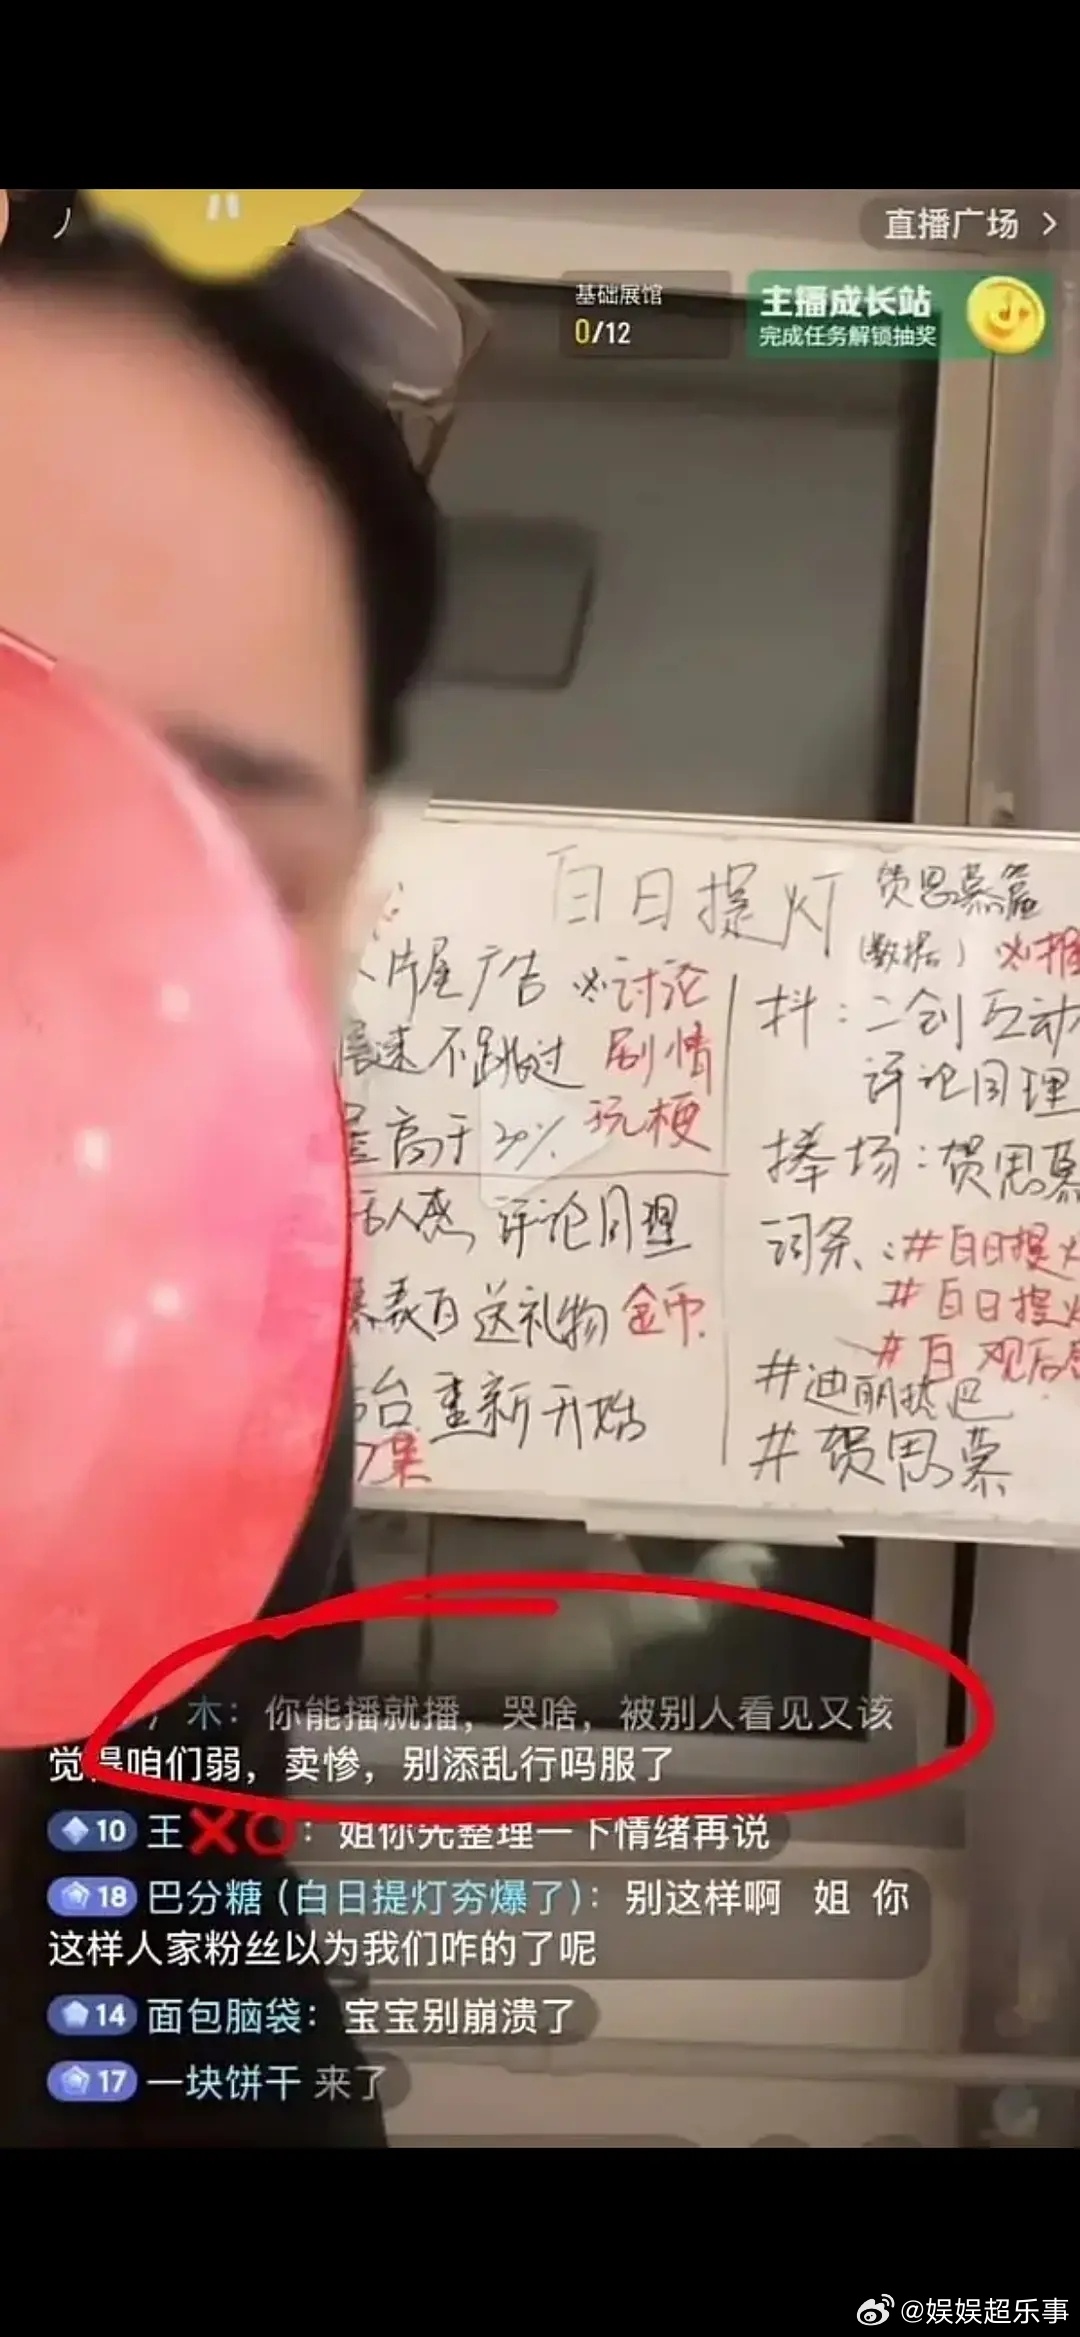 直播广场 >
基础展馆
0/12
主播成长站
完成任务解锁抽奖
白日提灯 贺思慕篇
(数据)
片尾广告 必讨论
不跳过 剧情
高于30% 玩梗
活人感 评论同理
表白送礼物 金币
台重新开始
集
抖:二创互动
评论同理
捧场:贺思慕
词条:#白日提灯
#白日提灯
#白 观后感
#迪丽热巴
#贺思慕
木:你能播就播,哭啥,被别人看见又该
觉得咱们弱,卖惨,别添乱行吗服了
10 王❌⭕:姐你先整理一下情绪再说
18 巴分糖(白日提灯夯爆了):别这样啊 姐 你
这样人家粉丝以为我们咋的了呢
14 面包脑袋:宝宝别崩溃了
17 一块饼干 来了
@娱娱超乐事